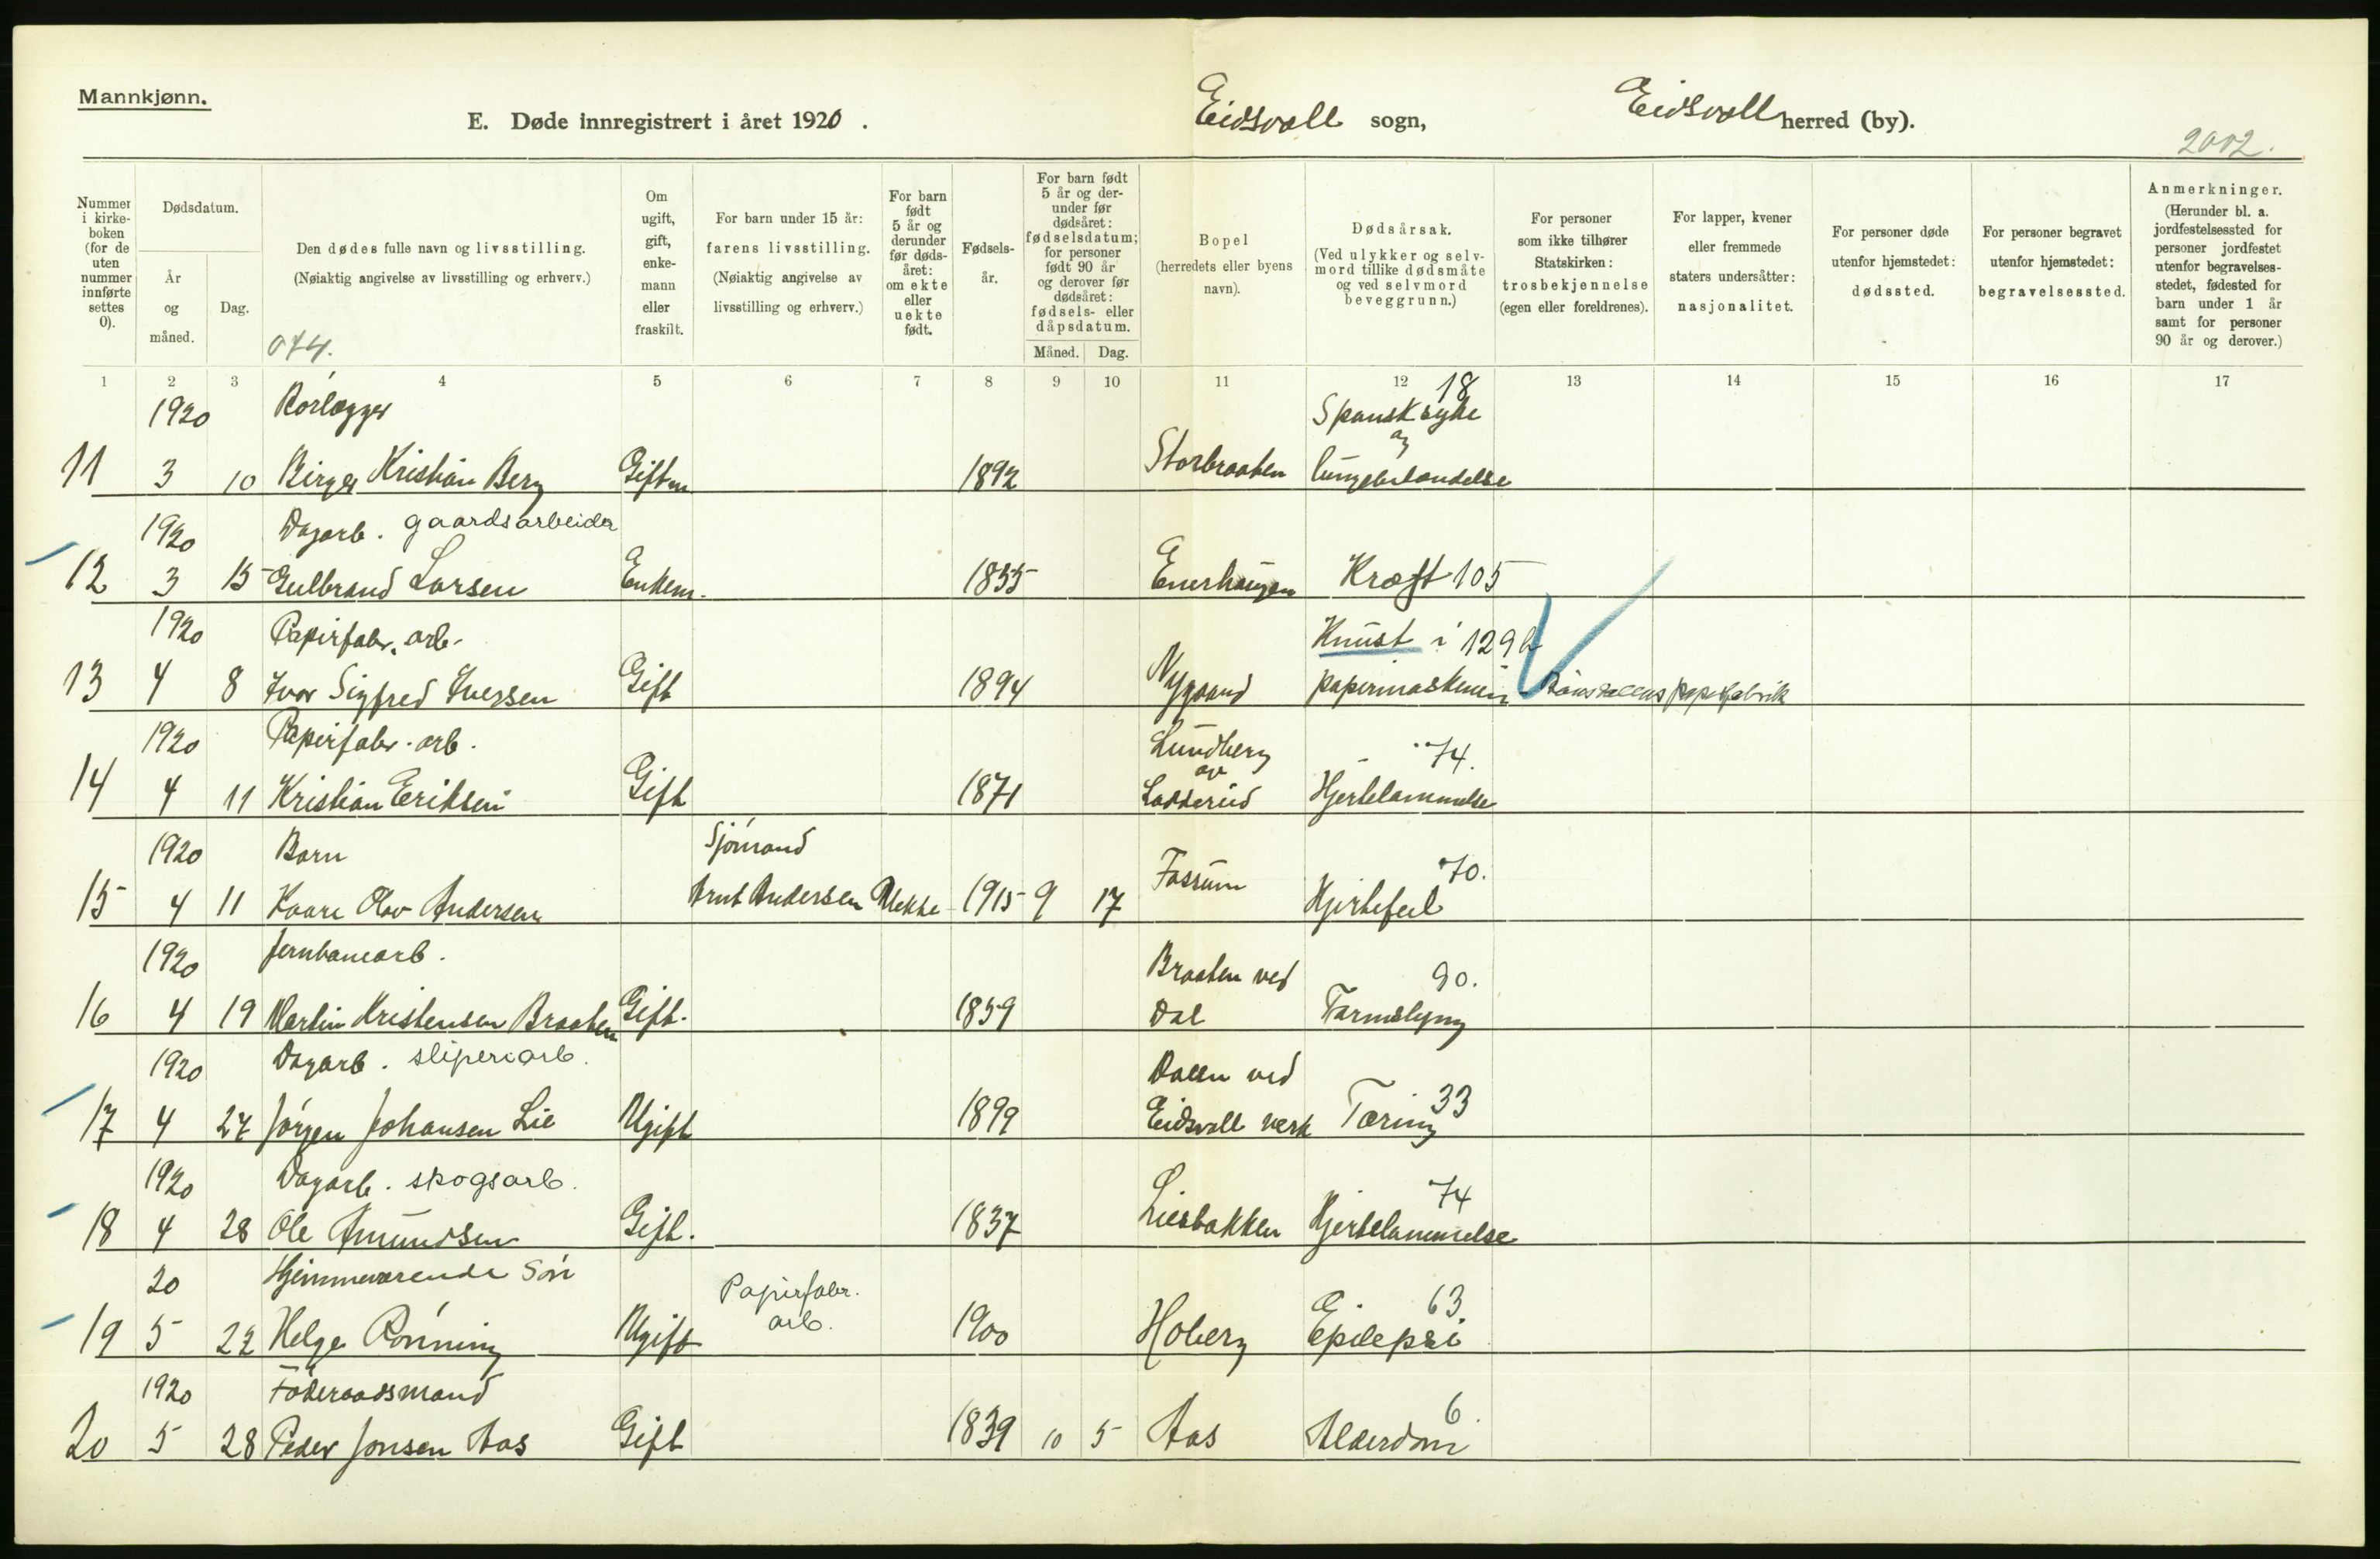 Mannkjønn.
E. Døde innregistrert i året 1920.
Eidsvoll sogn,
Eidsvoll herred (by).
2002.
Nummer i kirke-boken (for de uten nummer innførte settes 0).
Dødsdatum.
År og måned.
Dag.
Den dødes fulle navn og livsstilling.
(Nøiaktig angivelse av livsstilling og erhverv.)
074.
Om ugift, gift, enke-mann eller fraskilt.
For barn under 15 år: farens livsstilling.
(Nøiaktig angivelse av livsstilling og erhverv.)
For barn født 5 år og derunder før døds-året: om ekte eller uekte født.
Fødsels-år.
For barn født 5 år og der-under før dødsåret: fødselsdatum; for personer født 90 år og derover før dødsåret: fødsels- eller dåpsdatum.
Måned. Dag.
Bopel (herredets eller byens navn).
Dødsårsak.
(Ved ulykker og selv-mord tillike dødsmåte og ved selvmord beveggrunn.)
For personer som ikke tilhører Statskirken: trosbekjennelse (egen eller foreldrenes).
For lapper, kvener eller fremmede staters undersåtter: nasjonalitet.
For personer døde utenfor hjemstedet: dødssted.
For personer begravet utenfor hjemstedet: begravelsessted.
Anmerkninger.
(Herunder bl. a. jordfestelsessted for personer jordfestet utenfor begravelses-stedet, fødested for barn under 1 år samt for personer 90 år og derover.)
1 2 3 4 5 6 7 8 9 10 11 12 13 14 15 16 17
1920 Rörlægger Spansk syke 18
og
11 3 10 Birger Kristian Berg Giftm 1892 Storbraaten lungebetændelse
1920 Dagarb. gaardsarbeider
12 3 15 Gulbrand Larsen Enkem. 1855 Enerhaugen Kræft 105
1920 Papirfabr. arb. Knust i 129b
13 4 8 Ivar Sigfred Iversen Gift 1894 Nygaard papirmaskinen papirfabrik
1920 Papirfabr. arb. Lundberg 74.
av
14 4 11 Kristian Eriksen Gift 1871 Ladderud Hjertelammelse
1920 Barn Sjömand 70.
15 4 11 Kaare Olav Andersen Arnt Andersen Uekte 1915 9 17 Fossum Hjertefeil
1920 Jernbanearb. Braaten ved 90.
16 4 19 Martin Kristensen Braaten Gift. 1859 Dal Tarmslyng
1920 Dagarb. sliperiarb. Dalen ved 33
17 4 27 Jörgen Johansen Lie Ugift 1899 Eidsvoll verk Tæring
1920 Dagarb. skogsarb. 74
18 4 28 Ole Amundsen Gift. 1837 Liesbakken Hjertelammelse
20 Hjemmeværende Sön Papirfabr. 63
arb.
19 5 22 Helge Rönning Ugift 1900 Hoberg Epilepsi
1920 Föderaadsmand 6.
20 5 28 Peder Jonsen Aas Gift 1839 10 5 Aas Alderdom